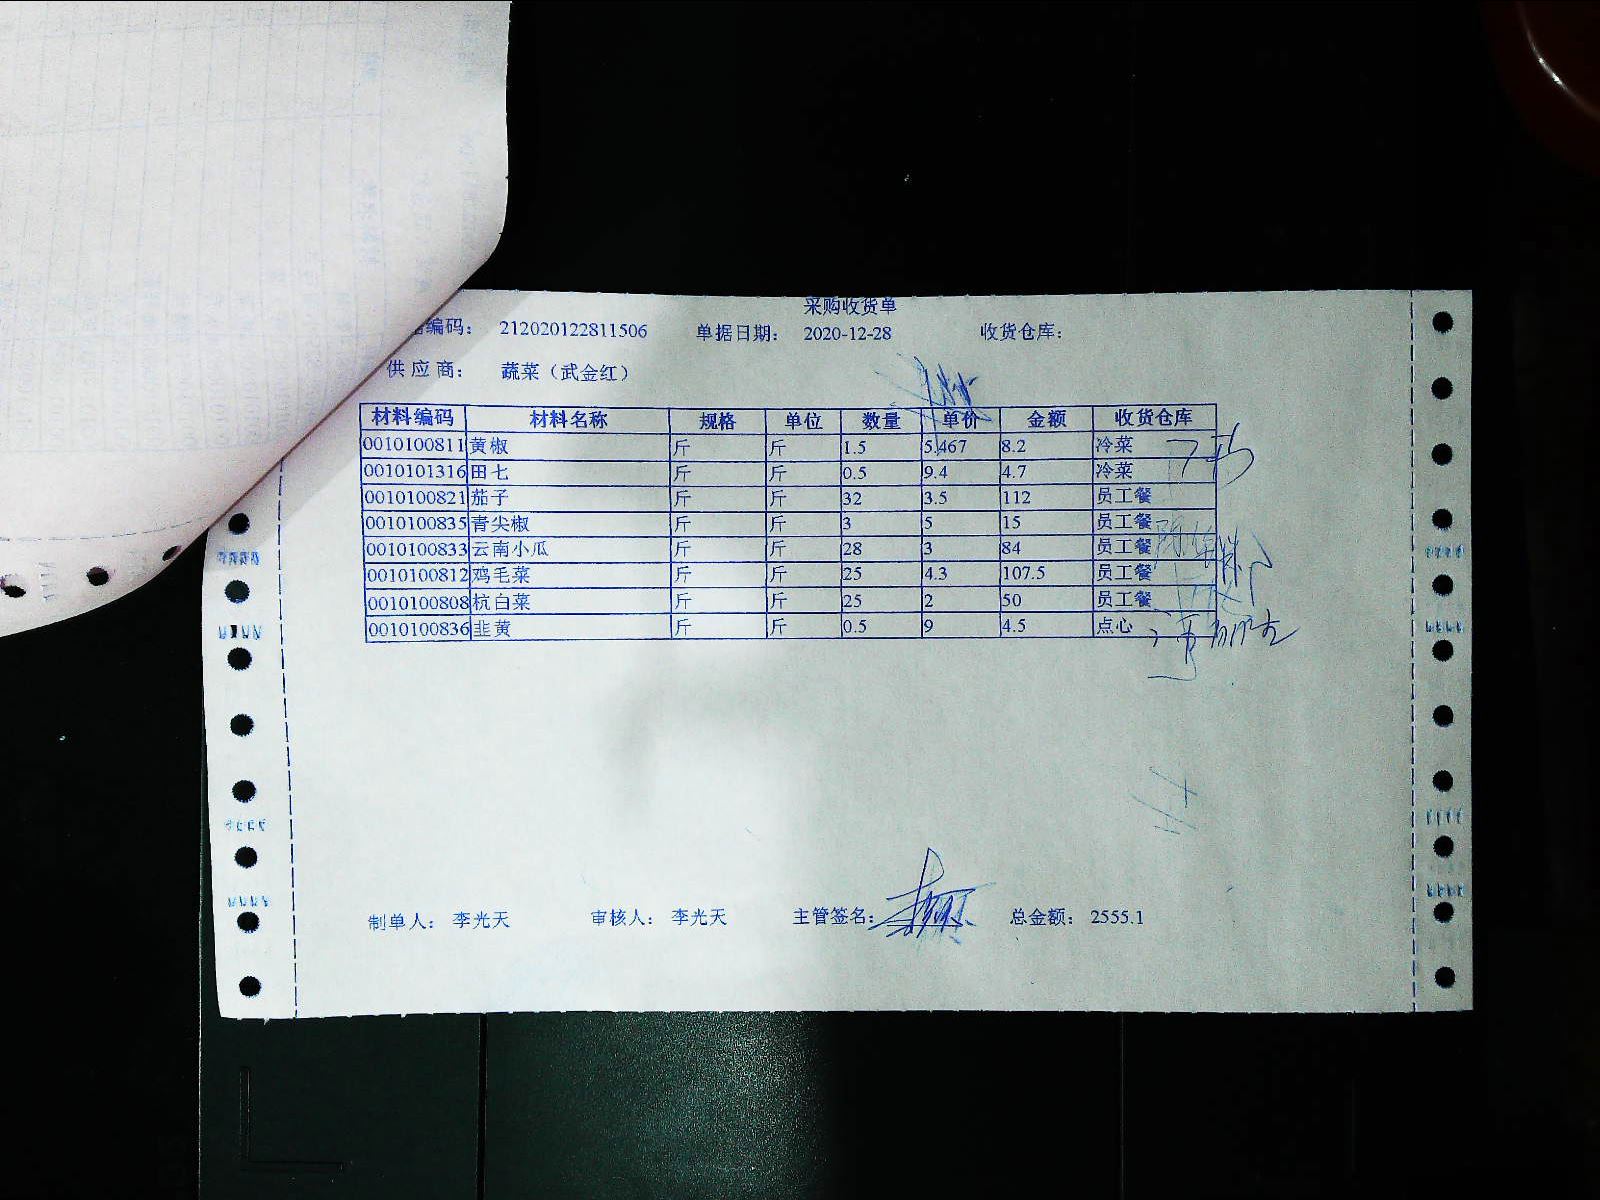 采购收货单
编码： 212020122811506 单据日期： 2020-12-28 收货仓库：
供应商： 蔬菜（武金红）
材料编码 材料名称 规格 单位 数量 单价 金额 收货仓库
0010100811 黄椒 斤 斤 1.5 5.467 8.2 冷菜
0010101316 田七 斤 斤 0.5 9.4 4.7 冷菜
0010100821 茄子 斤 斤 32 3.5 112 员工餐
0010100835 青尖椒 斤 斤 3 5 15 员工餐
0010100833 云南小瓜 斤 斤 28 3 84 员工餐
0010100812 鸡毛菜 斤 斤 25 4.3 107.5 员工餐
0010100808 杭白菜 斤 斤 25 2 50 员工餐
0010100836 韭黄 斤 斤 0.5 9 4.5 点心
制单人： 李光天 审核人： 李光天 主管签名： 总金额： 2555.1